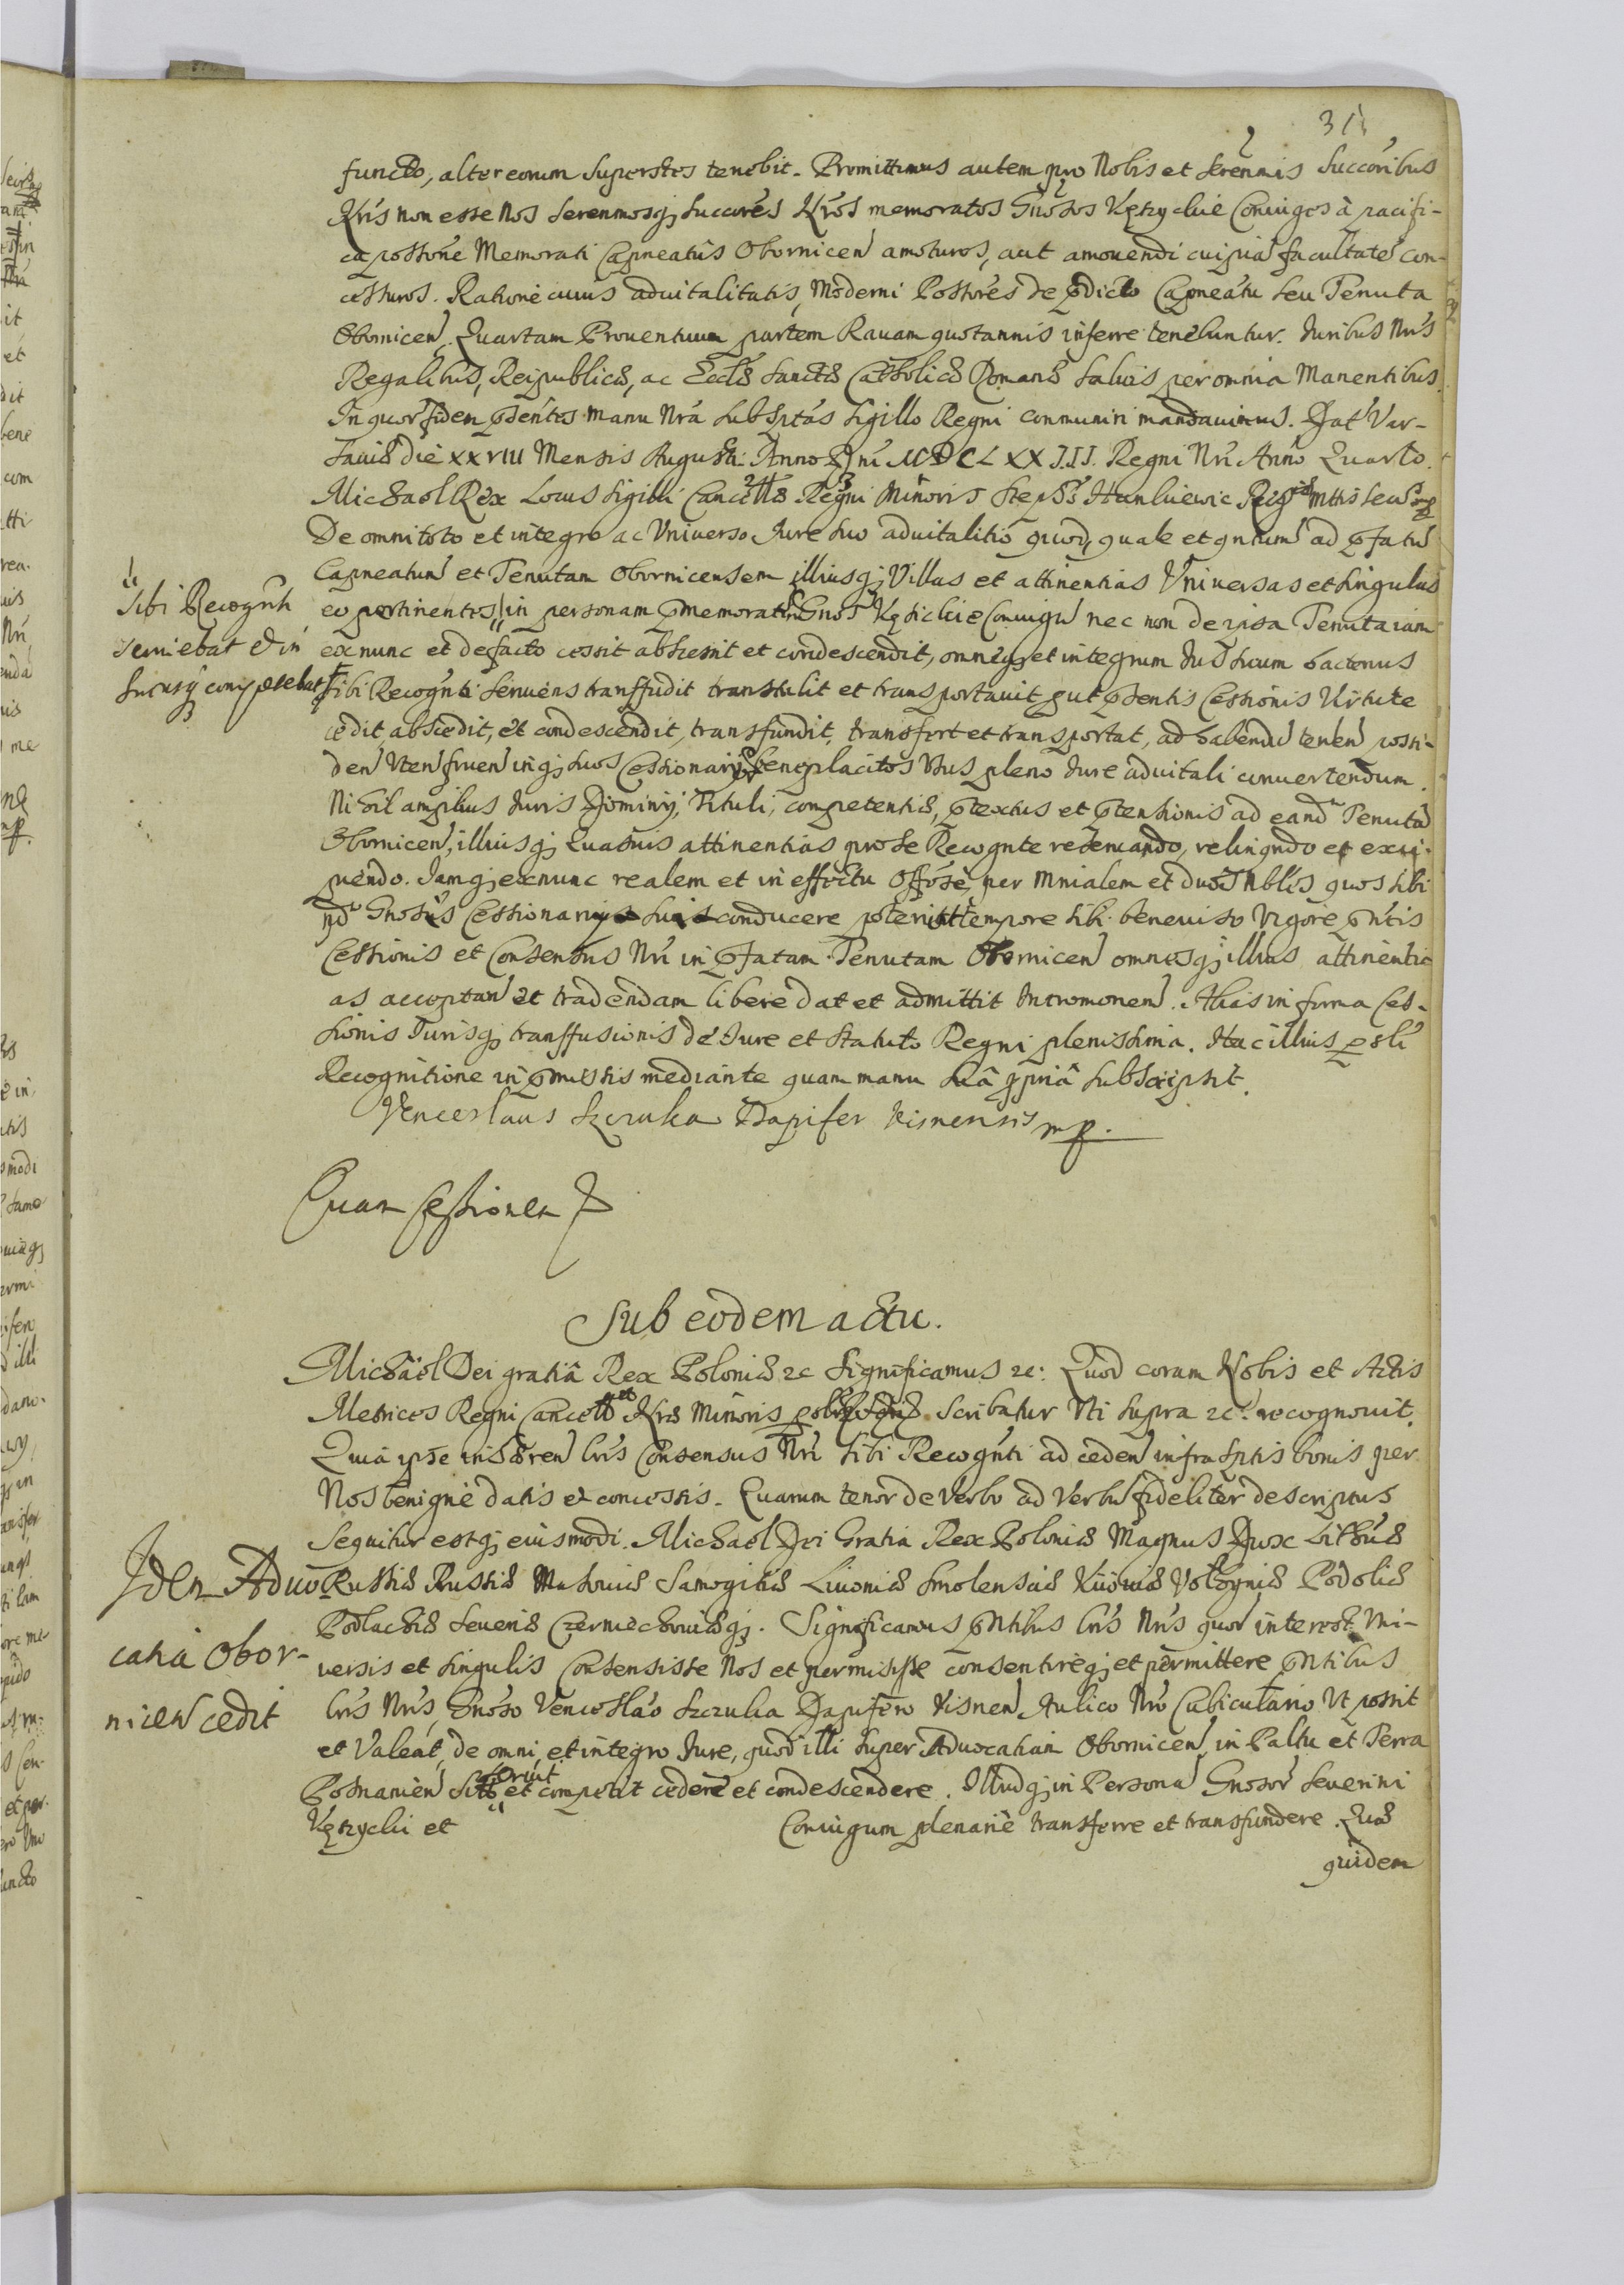 311
functo, alter eorum superstes tenebit. Promittimus autem pro Nobis et Serenmis Succoribus
Nris non esse Nos Serenmosq; Succores Nros memoratos Gnosos Kętzyckie Coniuges à pacifi-
ca possone Memorati Capneatus Obornicen amoturos, aut amouendi cuipiã facultatẽ con-
cessuros. Ratione cuius aduitalitatis, Moderni Possores de pdicto Capneatu seu Tenuta
Obornicen. Quartam Prouentuum partem Rauam quotannis inferre tenebuntur. Iuribus Nris
Regalibus, Reipublicæ, ac Ecclæ Sanctæ Catholicæ Romanæ saluis per omnia Manentibus.
In quor fidem psentes manu Nra subsptas sigillo Regni communiri mandauimus. Dat Var-
sauiæ die XXVIII Mensis Augusti Anno Dni MDCLXXIII. Regni Nri Anno Quarto.
Michael Rex Locus Sigilli Cancellæ Regni Minoris Steph Hankiewic Regæ Mttis Secr mp
De omni toto et integro ac Vniuerso Iure suo aduitalitio quod, quale et qntum ad pfatũ
Capneatum et Tenutam Obornicensem illiusq; Villas et attinentias Vniuersas et singulas
eo pertinentes in personam pmemorator Gnos Kętzickie Coniugũ nec non de ipsa Tenuta iam
Sibi Recognti
seruiebat & in
futurũ competebat
ex nunc et de facto cessit abscessit et condescendit, omneq; et integrum Ius suum hactenus
sibi Recognti seruiens transfudit transtulit et transportauit put psentis Cessionis Virtute
cedit abscedit, et condescendit, transfundit, transfert et transportat, ad habendũ tenen possi-
den Vten fruen inq; suos Cessionarios beneplacitos Vsus pleno Iure aduitali conuertendum.
Nihil amplius Iuris Dominij, Tituli, competentiæ, ptextus et ptensionis ad eand Tenutã
Obornicen, illiusq; quasuis attinentias pro se Recognte reseruando, relinqndo et exci-
piendo. Iamq; ex nunc realem et in effectu Offose, per Mnialem et duos Nbles quos sibi
Gnosis Cessionarijs suis conducere plerit tempore sibi beneuiso vigore pntis
Cessionis et Consensus Nri in pfatam Tenutam Obornicen omnesq; illius attinenti-
as acceptan et tradendam libere dat et admittit Intromonem. Alias in forma Ces-
sionis Iurisq; transfusionis de Iure et Statuto Regni plenissima. Hac illius psli
Recognitione in pmissis mediante quam manu suâ ppriâ subscripsit.
Venceslaus Szczuka Dapifer Visnensis mp.
Quam Cessionem
Sub eodem actu.
Michaël Dei gratiâ Rex Poloniæ &c Significamus &c: Quod coram Nobis et Actis
Metrices Regni Cancellæ Nræ Minoris Scribatur Vti supra &c. recognouit.
Quia ipse inhæren lris Consensus Nri sibi Recognti ad ceden infrasptis bonis per
Nos benigne datis et concessis. Quarum tenor de Verbo ad Verbũ fideliter descriptus
Sequitur estq; eiusmodi. Michael Dei Gratia Rex Poloniæ Magnus Dux Lithuæ
Idem Aduo-
catiã Obor-
nicen cedit
Russiæ Prussiæ Masouiæ Samogitiæ Liuoniæ Smolensciæ Kiiouiæ Volhyniæ Podoliæ
Podlachiæ Seueriæ Czerniechouiæq;. Significamus pntibus lris Nris quor interest Vni-
uersis et singulis Consensisse Nos et permisisse consentireq; et permittere pntibus
lris Nris Gnoso Venceslao Szczuka Dapifero Visnen Aulico Nro Cubiculario Vt possit
et Valeat, de omni et integro Iure, quod illi super Aduocatiam Obornicen in Paltu et Terra
Posnanien et competit cedere et condescendere. Illudq; in Personã Gnosor Seuerini
Kętzycki et Coniugum plenariè transferre et transfundere. Quæ
quidem